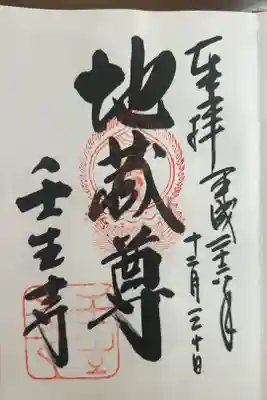 奉拝 平成二十六年
十二月三十日
地蔵尊
壬生寺